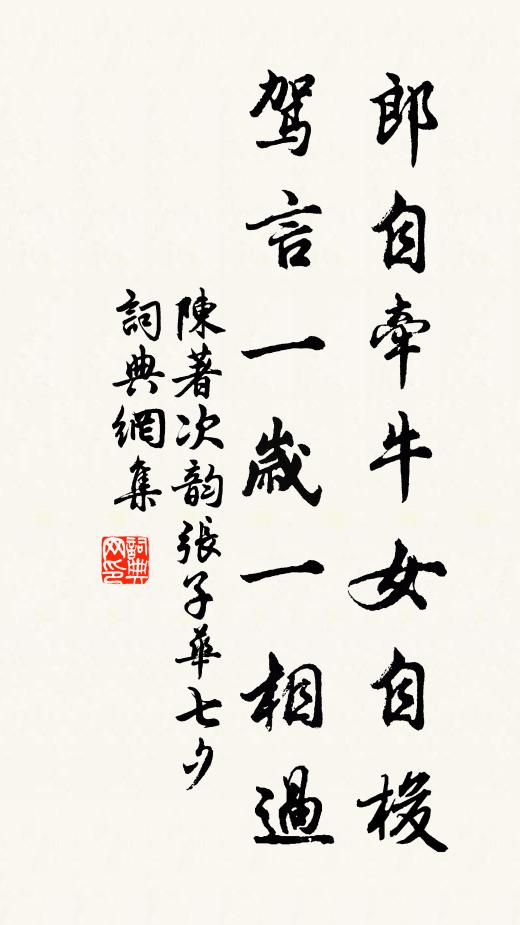 郎自牽牛女自梭
駕言一歲一相過
陳著次韵張子華七夕
詞典網集
詞典网印